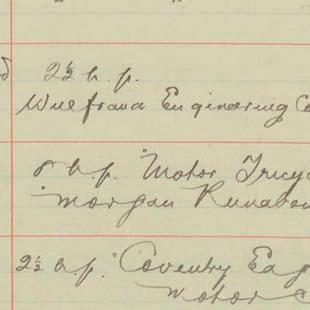 2½ h.p.
Wilfrand Engineering Co
8 h.p. "Motor Tricyc
"Morgan Runabou
2½ h.p. "Coventry Eag
Motor c